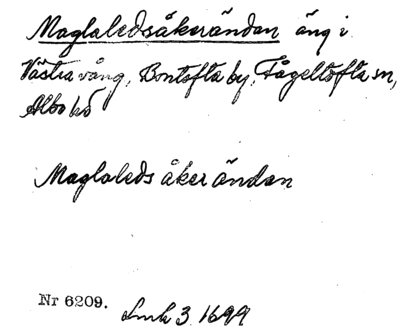 Maglaledsåkerändan äng i
Västra vång, Bontofta by, Fågeltofta sn,
Albo hd
Maglaleds åker ändan
Nr 6209. Lmk 3 1699